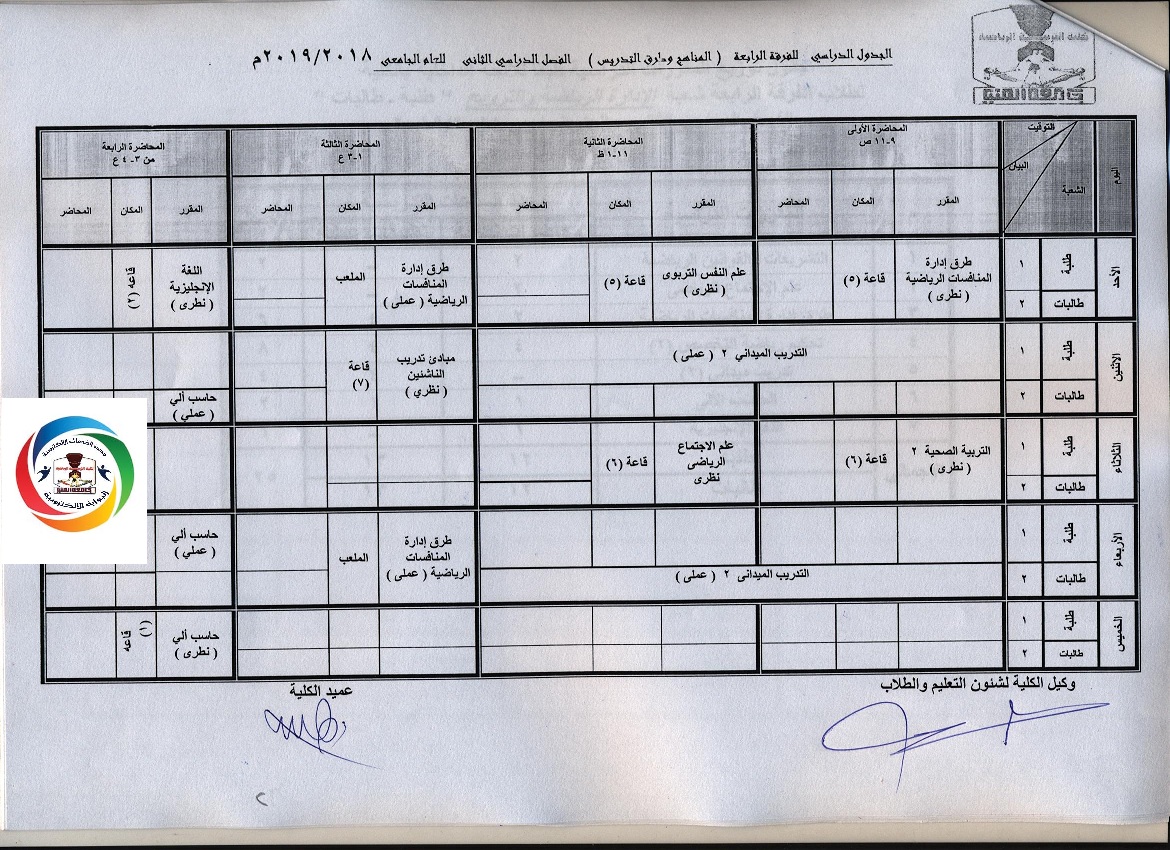 كلية التربية الرياضية
جامعة المنيا
الجدول الدراسي للفرقة الرابعة ( المناهج ودارق التدريس ) الفصل الدراسي الثانى للعام الجامعى ٢٠١٩/٢٠١٨م
اليوم
التوقيت
البيان
الشعبة
المحاضرة الأولى
٩-١١ ص
المحاضرة الثانية
١١-١ ظ
المحاضرة الثالثة
١-٣ ع
المحاضرة الرابعة
من ٣- ٤ ع
المقرر المكان المحاضر المقرر المكان المحاضر المقرر المكان المحاضر المقرر المكان المحاضر
الأحد
طلبة ١
طالبات ٢
طرق إدارة
المنافسات الرياضية
( نظرى )
قاعة (٥)
علم النفس التربوى
( نظرى )
قاعة (٥)
طرق إدارة
المنافسات
الرياضية ( عملى )
الملعب
اللغة
الإنجليزية
( نطرى )
قاعه (٢)
الاثنين
طلبة ١
التدريب الميداني ٢ ( عملى )
مبادئ تدريب
الناشئين
( نظري )
قاعة
(٧)
طالبات ٢
حاسب ألي
( عملي )
الثلاثاء
طلبة ١
طالبات ٢
التربية الصحية ٢
( نظرى )
قاعة (٦)
علم الاجتماع
الرياضى
نظرى
قاعة (٦)
الأربعاء
طلبة ١
طرق إدارة
المنافسات
الرياضية ( عملى )
الملعب
حاسب ألي
( عملي )
طالبات ٢
التدريب الميدانى ٢ ( عملى )
الخميس
طلبة ١
طالبات ٢
حاسب ألي
( نظرى )
قاعه (١)
وكيل الكلية لشئون التعليم والطلاب
عميد الكلية
كلية التربية الرياضية
جامعة المنيا
البوابة الالكترونية